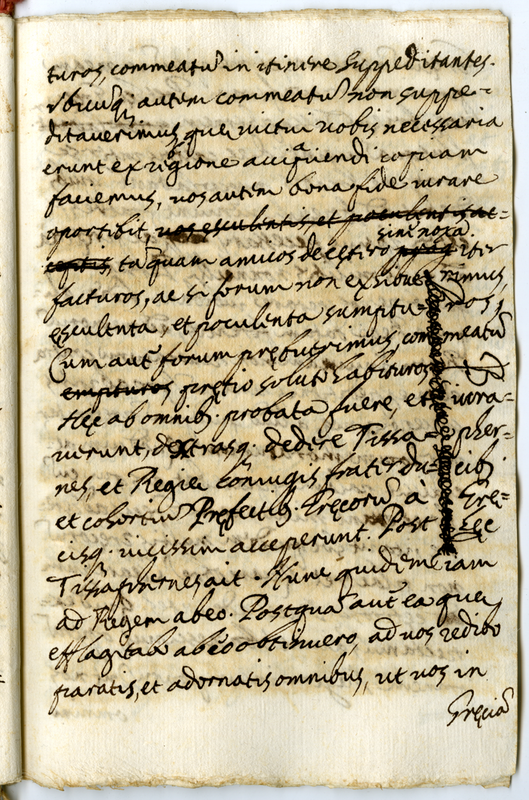 turos, commeatū in itinere suppeditantes.
Vbicūq; autem commeatū non suppe-
ditaverimus, quę victui vobis necessaria
erunt ex regione accipiendi copiam
faciemus, vos autem bona fide iurare
oportibit, vos esculentis, et poculentis at-
sine noxa
tā quam amicos deęstero iter
facturos, ac si forum non exhibue rimus,
esculenta, et poculenta sumptu- ros,
Cum autē forum prębuerimus, com meatū
empturos pretio soluto habituros
Hęc ab omnib. probata fuere, et iura-
verunt, dextrasq. dedere Tissa- pher-
nes, et Regię coniugis frater du- cib;
et cohortiū Pręfectis. Pręcorū à Grę-
cisq. vicissim acceperunt. Post hęc
Tissafernes ait. Nunc quidem iam
ad Regem abeo. Postquā autē ea quę
efflagitabo ab eo obtinuero, ad vos redibo
paratis, et adornatis omnibus, ut vos in
Gręciā